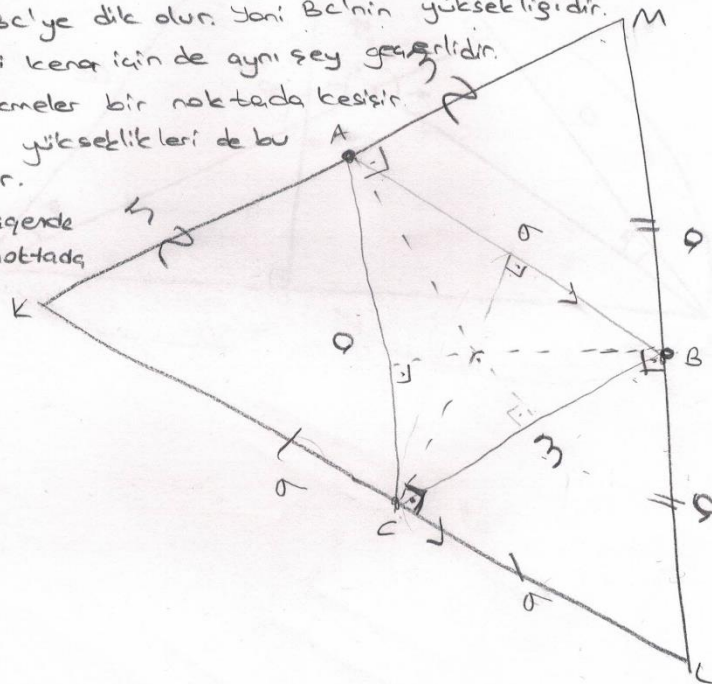 bc'ye dik olur. Yani Bc'nin yüksekliğidir.
i kenar için de aynı şey geçerlidir.
meler bir noktada kesişir.
yükseklikleri de bu
r.
çgende
noktada
M
A
K
B
C
L
3